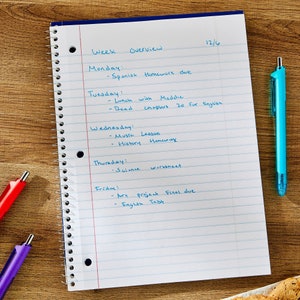 Week Overview 12/6
Monday:
- Spanish Homework due
Tuesday:
- Lunch with Maddie
- Read chapters 20 for English
Wednesday:
- Music League
- Historic Honoring
Thursday:
- Science worksheet
Friday:
- Art project Final due
- English Test